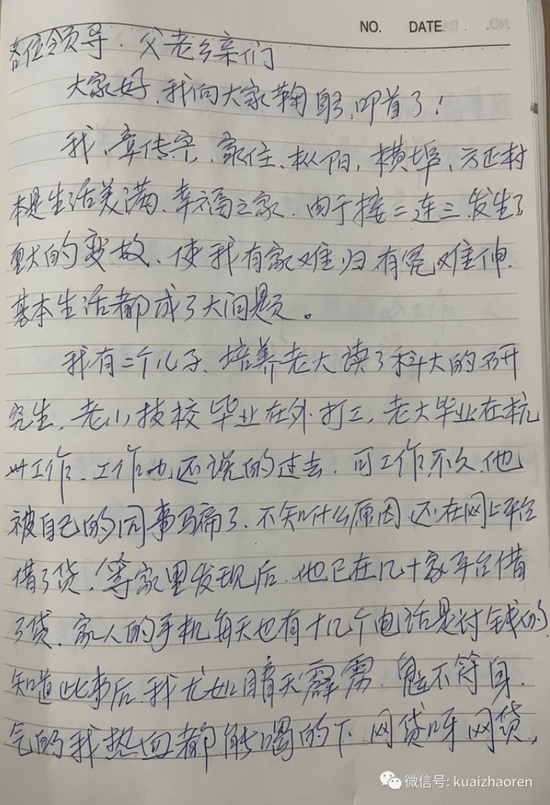 NO. DATE
各位领导、父老乡亲们
大家好,我向大家鞠躬,叩首了!
我、章传宗、家住、枞阳、横埠、方正村
本是生活美满、幸福之家、由于接二连三发生了
重大的变故、使我有家难归有冤难伸.
基本生活都成了大问题。
我有二个儿子、培养老大读了科大的研
究生,老小技校毕业在外打工,老大毕业在杭
州工作、工作也还说的过去,可工作不久他
被自己的同事骗了、不知什么原因还在网上平台
借了贷,等家里发现后、他已在几十家平台借
了贷、家人的手机每天也有十几个电话是讨钱的
知道此事后我尤如晴天霹雳、魂不符身、
气的我热血都能喝的下、网贷呀网贷,
微信号: kuaizhaoren